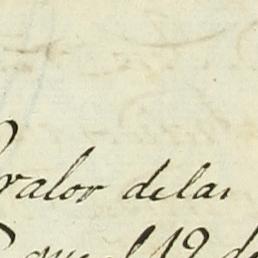 valor delas
que el 19 de